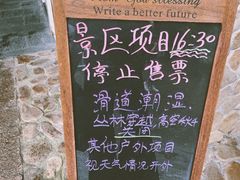 Write a better future
景区项目16:30
停止售票
滑道潮湿
丛林穿越高空秋千
关闭
其他户外项目
视天气情况开外